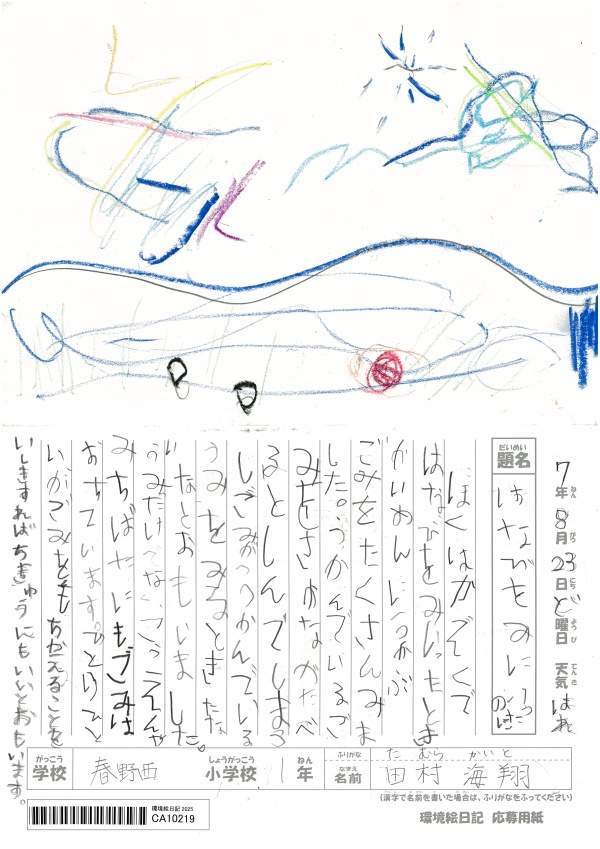 7年8月23日ど曜日 天気 はれ
ねん がつ にち ようび てんき
だいめい
題名 はなびをみにいった
ぼくはかぞくで
はなびをみにいったとき
かいめんにうかぶ
ごみをたくさんみま
した。うかんでいるご
みをさかながたべ
るとしんでしまう
しごみがうかんでいる
うみをみるときたな
いなとおもいました。
うみだけでなく、こうえんや
みちばたにもごみは
おちています。ひとりひと
りがごみをもちかえることを
いしきすればちきゅうにもいいとおもいます。
がっこう しょうがっこう ねん ふりがな たむら かいと
学校 春野西 小学校 1年 なまえ 名前 田村 海翔
(漢字で名前を書いた場合は、ふりがなをふってください)
環境絵日記 2025
CA10219
環境絵日記 応募用紙